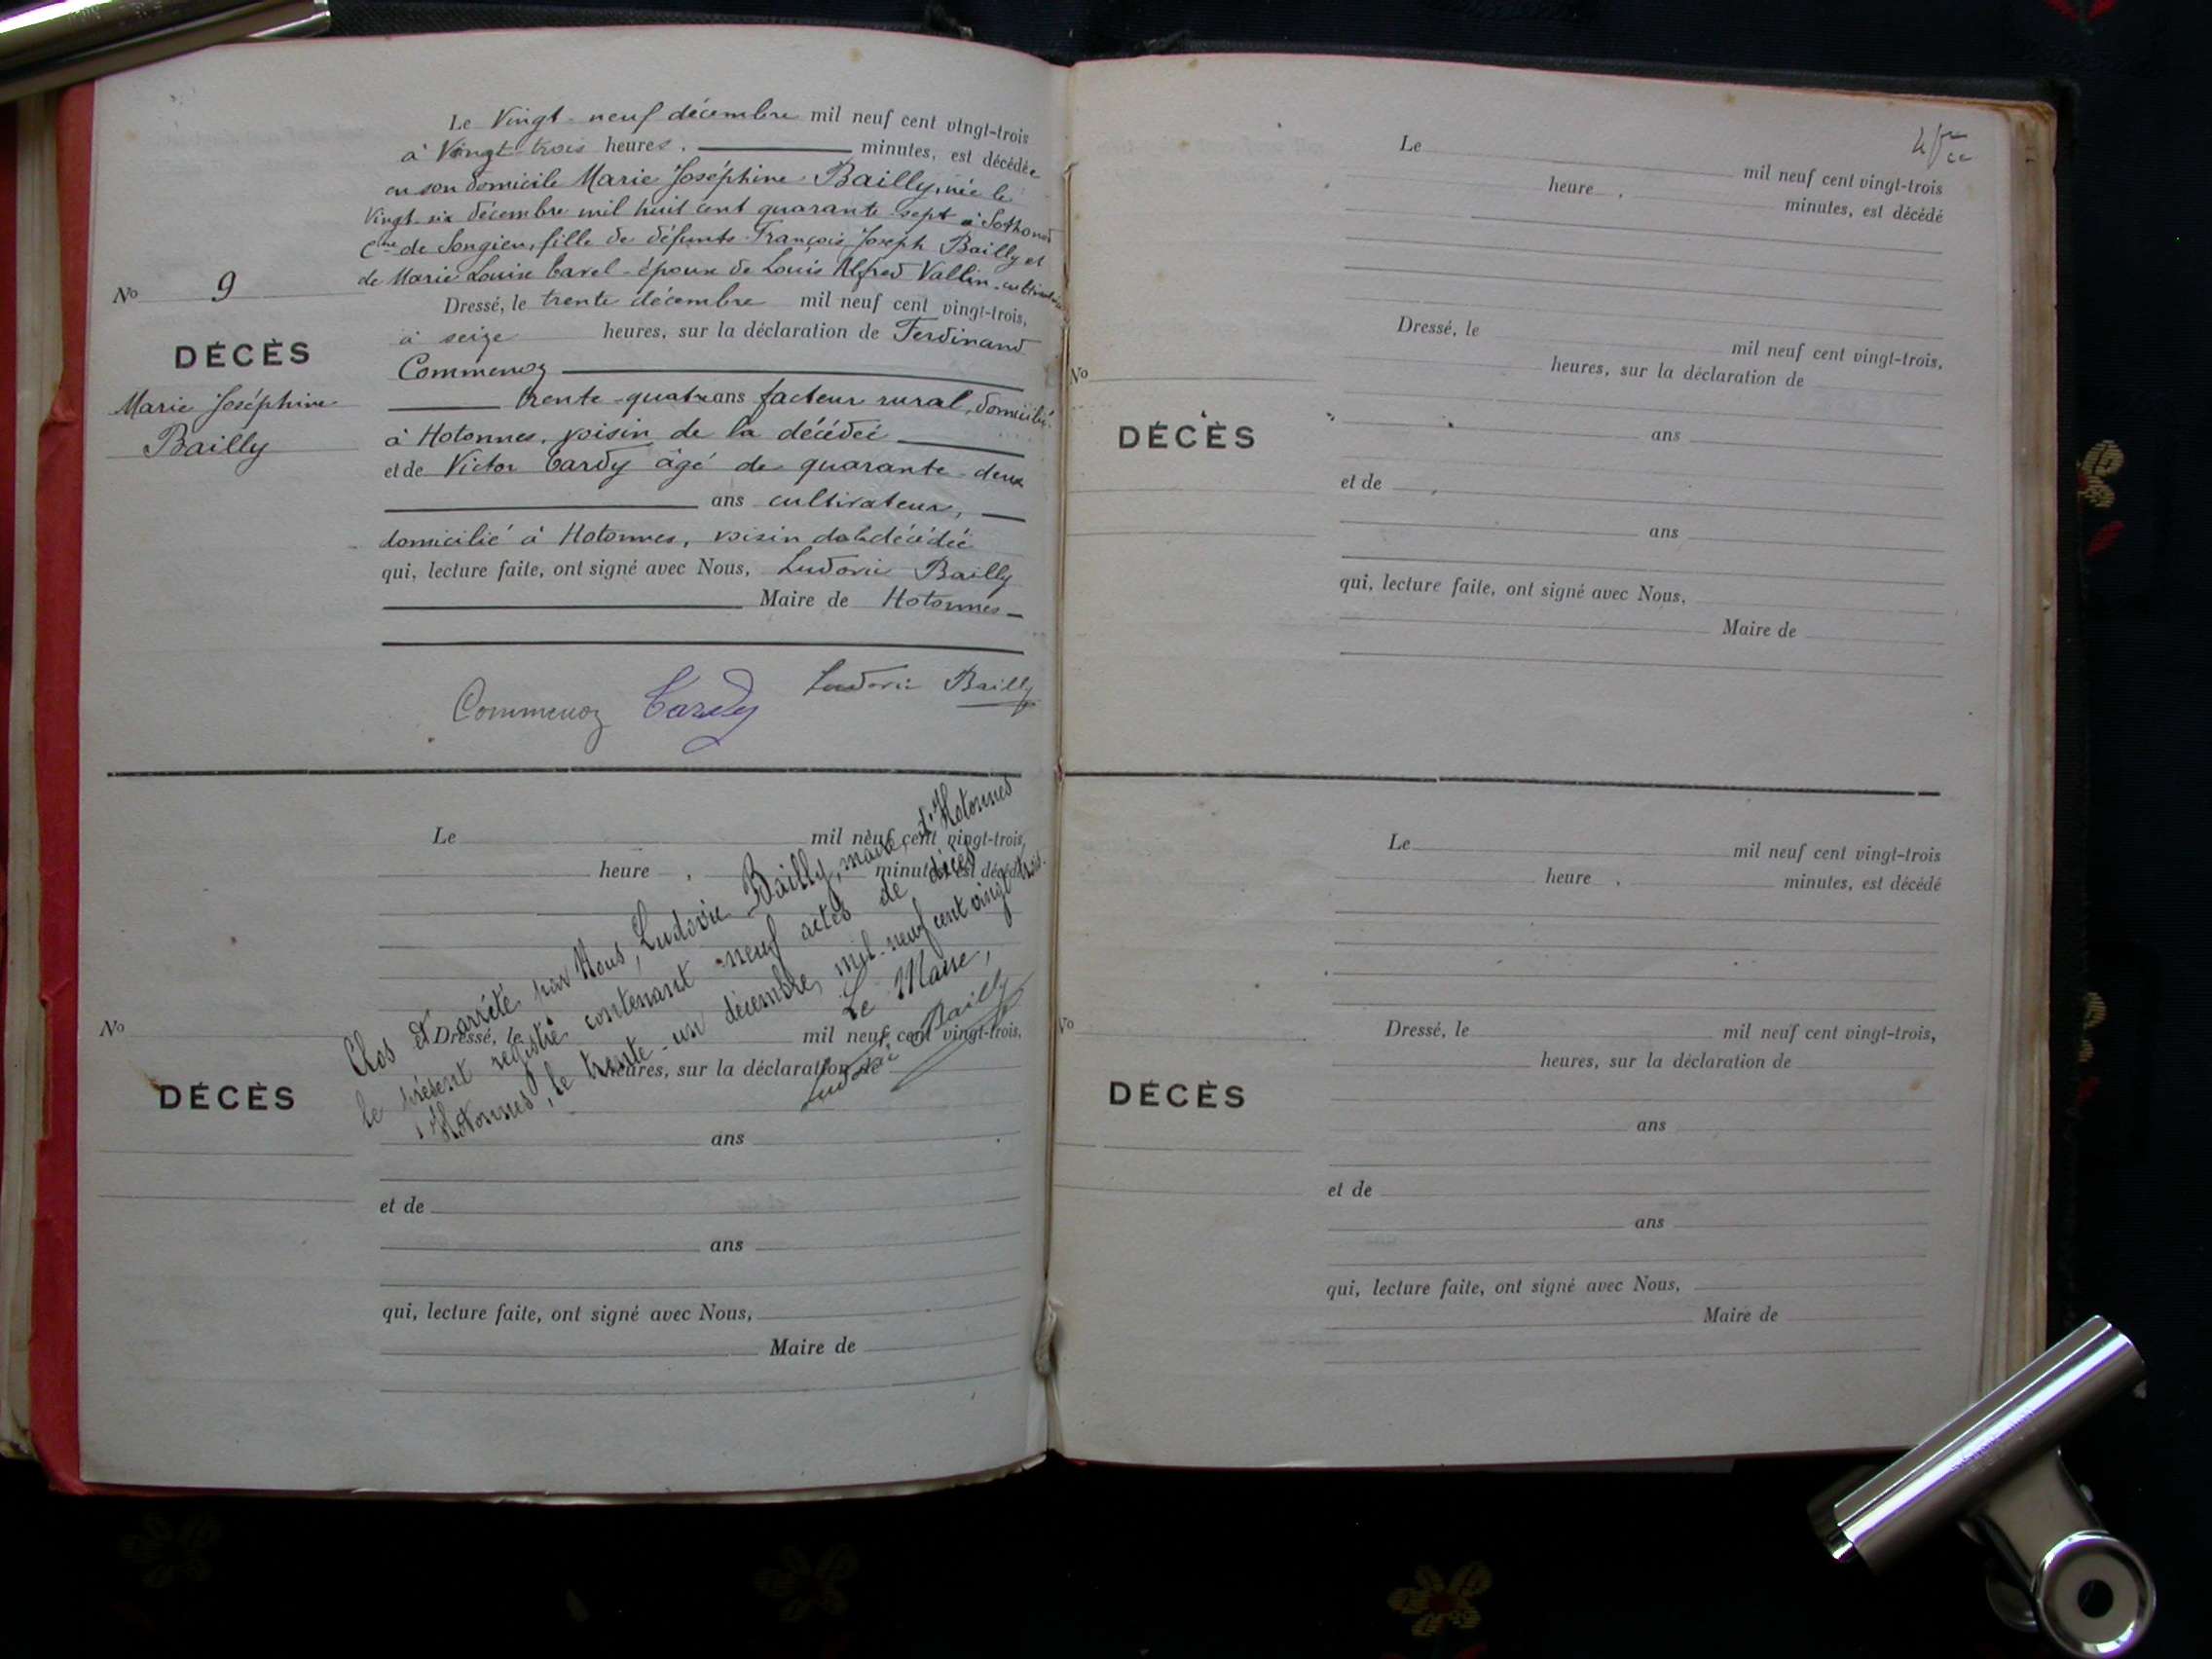 Le Vingt-neuf décembre mil neuf cent vingt-trois
à Vingt-trois heures, minutes, est décédée
en son domicile Marie Joséphine Bailly, née le
Vingt-six décembre mil huit cent quarante-sept à Sothonod
Cne de Songieu, fille de défunts François Joseph Bailly et
de Marie Louise Carel - épouse de Louis Alfred Vallin
No 9
DÉCÈS
Marie Joséphine
Bailly
Dressé, le trente décembre mil neuf cent vingt-trois,
à seize heures, sur la déclaration de Ferdinand
Commenoz
trente-quatre ans facteur rural, domicilié
à Hotonnes, voisin de la décédée
et de Victor Cardy âgé de quarante-deux
ans cultivateur,
domicilié à Hotonnes, voisin de la décédée
qui, lecture faite, ont signé avec Nous, Ludovic Bailly
Maire de Hotonnes
Commenoz Cardy Ludovic Bailly
Le mil neuf cent vingt-trois,
heure , minutes, est décédé
No
DÉCÈS
Dressé, le mil neuf cent vingt-trois,
heures, sur la déclaration de
ans
et de
ans
qui, lecture faite, ont signé avec Nous,
Maire de
Clos et arrêté par Nous, Ludovic Bailly, maire, d'Hotonnes
le présent registre contenant neuf actes de décès
Hotonnes, le trente-un décembre, mil-neuf cent vingt trois.
Le Maire,
Ludovic Bailly
Le mil neuf cent vingt-trois
heure , minutes, est décédé
No
DÉCÈS
Dressé, le mil neuf cent vingt-trois,
heures, sur la déclaration de
ans
et de
ans
qui, lecture faite, ont signé avec Nous,
Maire de
Le mil neuf cent vingt-trois
heure , minutes, est décédé
No
DÉCÈS
Dressé, le mil neuf cent vingt-trois,
heures, sur la déclaration de
ans
et de
ans
qui, lecture faite, ont signé avec Nous,
Maire de